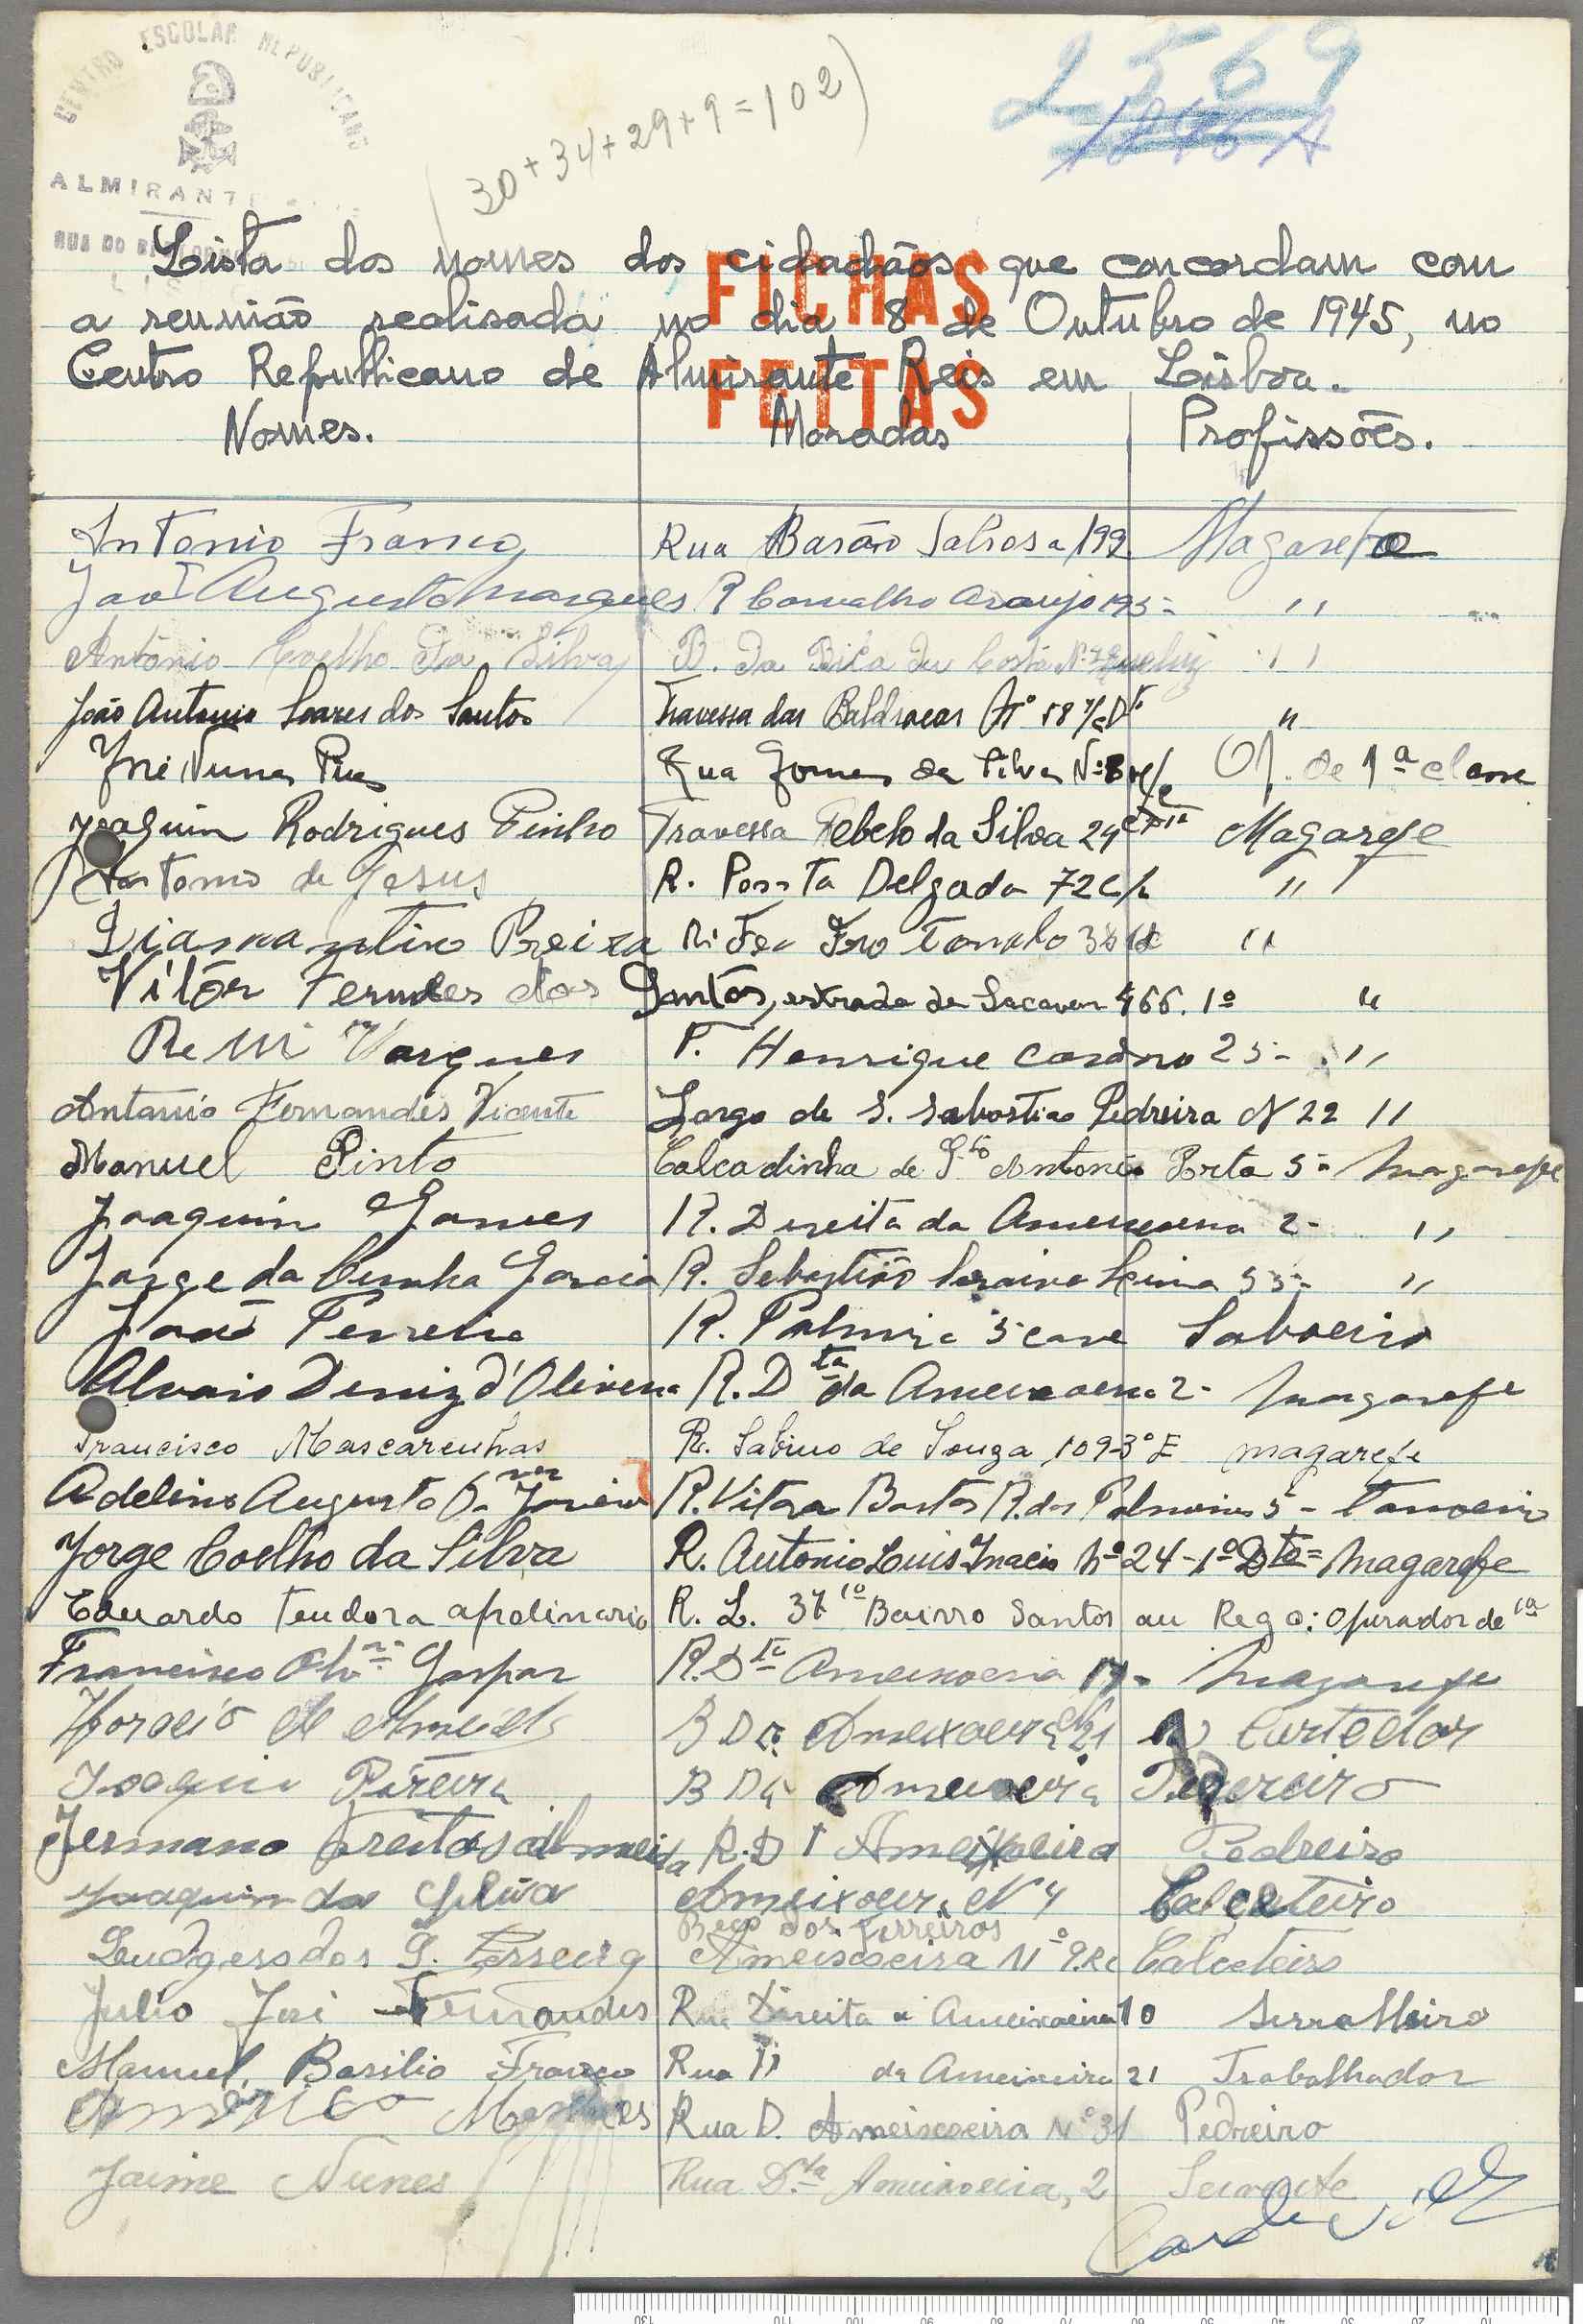 CENTRO ESCOLAR REPUBLICANO
ALMIRANTE
RUA DO
(30+34+29+9=102)
2569
1246 A
FICHAS
FEITAS
Lista dos nomes dos cidadãos que concordam com
a reunião realisada no dia 8 de Outubro de 1945, no
Centro Republicano de Almirante Reis em Lisboa.
Nomes. Moradas Profissões.
Antonio Franco Rua Barão Sabrosa 199 Magarefe
João Augusto Marques R Carvalho Araujo 195= ,,
António Coelho da Silva B. da Bica du Costa Nº Queluz ,,
João Antonio Soares dos Santos Travessa das Baldracas Nº 58 r/c Dt "
José Nunes Pires Rua Gomes da Silva Nº 8 r/c Of. de 1ª classe
Joaquim Rodrigues Pinho Travessa Rebelo da Silva 24 Magarefe
Antonio de Jesus R. Possta Delgada 72 c/v "
Diamantino Preira 38 "
Vitór Fernades dos Santos, estrada de Sacavem 466. 1º "
Remi Vasques T. Henrique Cardoso 25- ,,
Antonio Fernandes Vicente Largo de S. Sabostiao Pedreira N 22 ,,
Manuel Pinto Calcadinha de Sto Antonio Porta 5- Magarefe
Joaquim Gomes R. Direita da Ameixoeira 2- ,,
Jorge da Cunha Garcia R. Sebastião Saraiva Lima 53- ,,
José Ferreira R. Palmira 5 cave Saboeiro
Alvaro Deniz d'Oliveira R. Dta da Ameixoeira 2- Magarefe
Francisco Mascarenhas R. Sabino de Souza 109-3º E magarefe
Adelino Augusto R. Vitor Bastos R. das Palmeiras 5- Tanoeiro
Jorge Coelho da Silva R. Antonio Luis Inacio Nº 24-1º Dto= Magarefe
Eduardo Teudora apolinario R. L. 37 1º Bairro Santos au Rego: Opurador de 1ª
Francisco Olivra Gaspar R. Dta Ameixoeira 17- Magarefe
Horacio de Almeida B Da Ameixoeira 21 Curtedor
Joaquim Pereira B Da Ameixoeira Pedreiro
Jermano Freitas Almeida R. D t Ameixoeira Pedreiro
Joaquim da Silva Ameixoeira N 4 Calceteiro
Beco dos Ferreiros
Ludgero dos S. Ferreira Ameixoeira Nº 9. Rc Calceteiro
Julio José Fernandes Rua Direita a Ameixoeira 10 Serralheiro
Manuel Basilio Franco Rua " da Ameixoeira 21 Trabalhador
Américo Rua D. Ameixoeira Nº 31 Pedreiro
Jaime Nunes Rua Dta Ameixoeira, 2 Servente